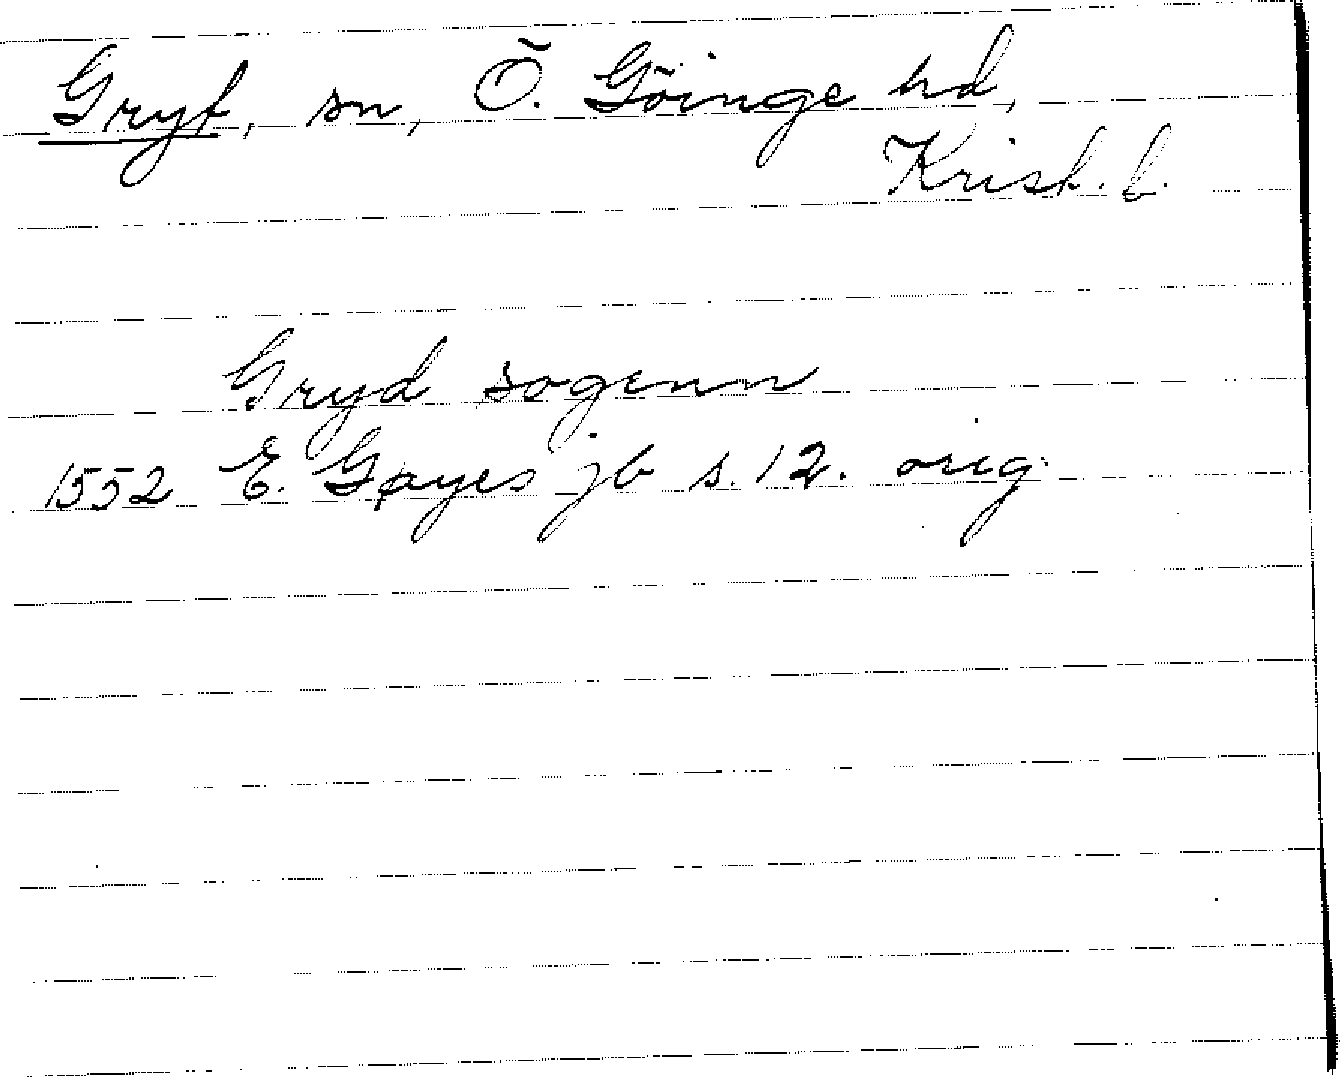 Gryt, sn, Ö. Göinge hd,
Krist. l.
Gryd sogenn
1552 E. Gøyes jb s. 12. orig.